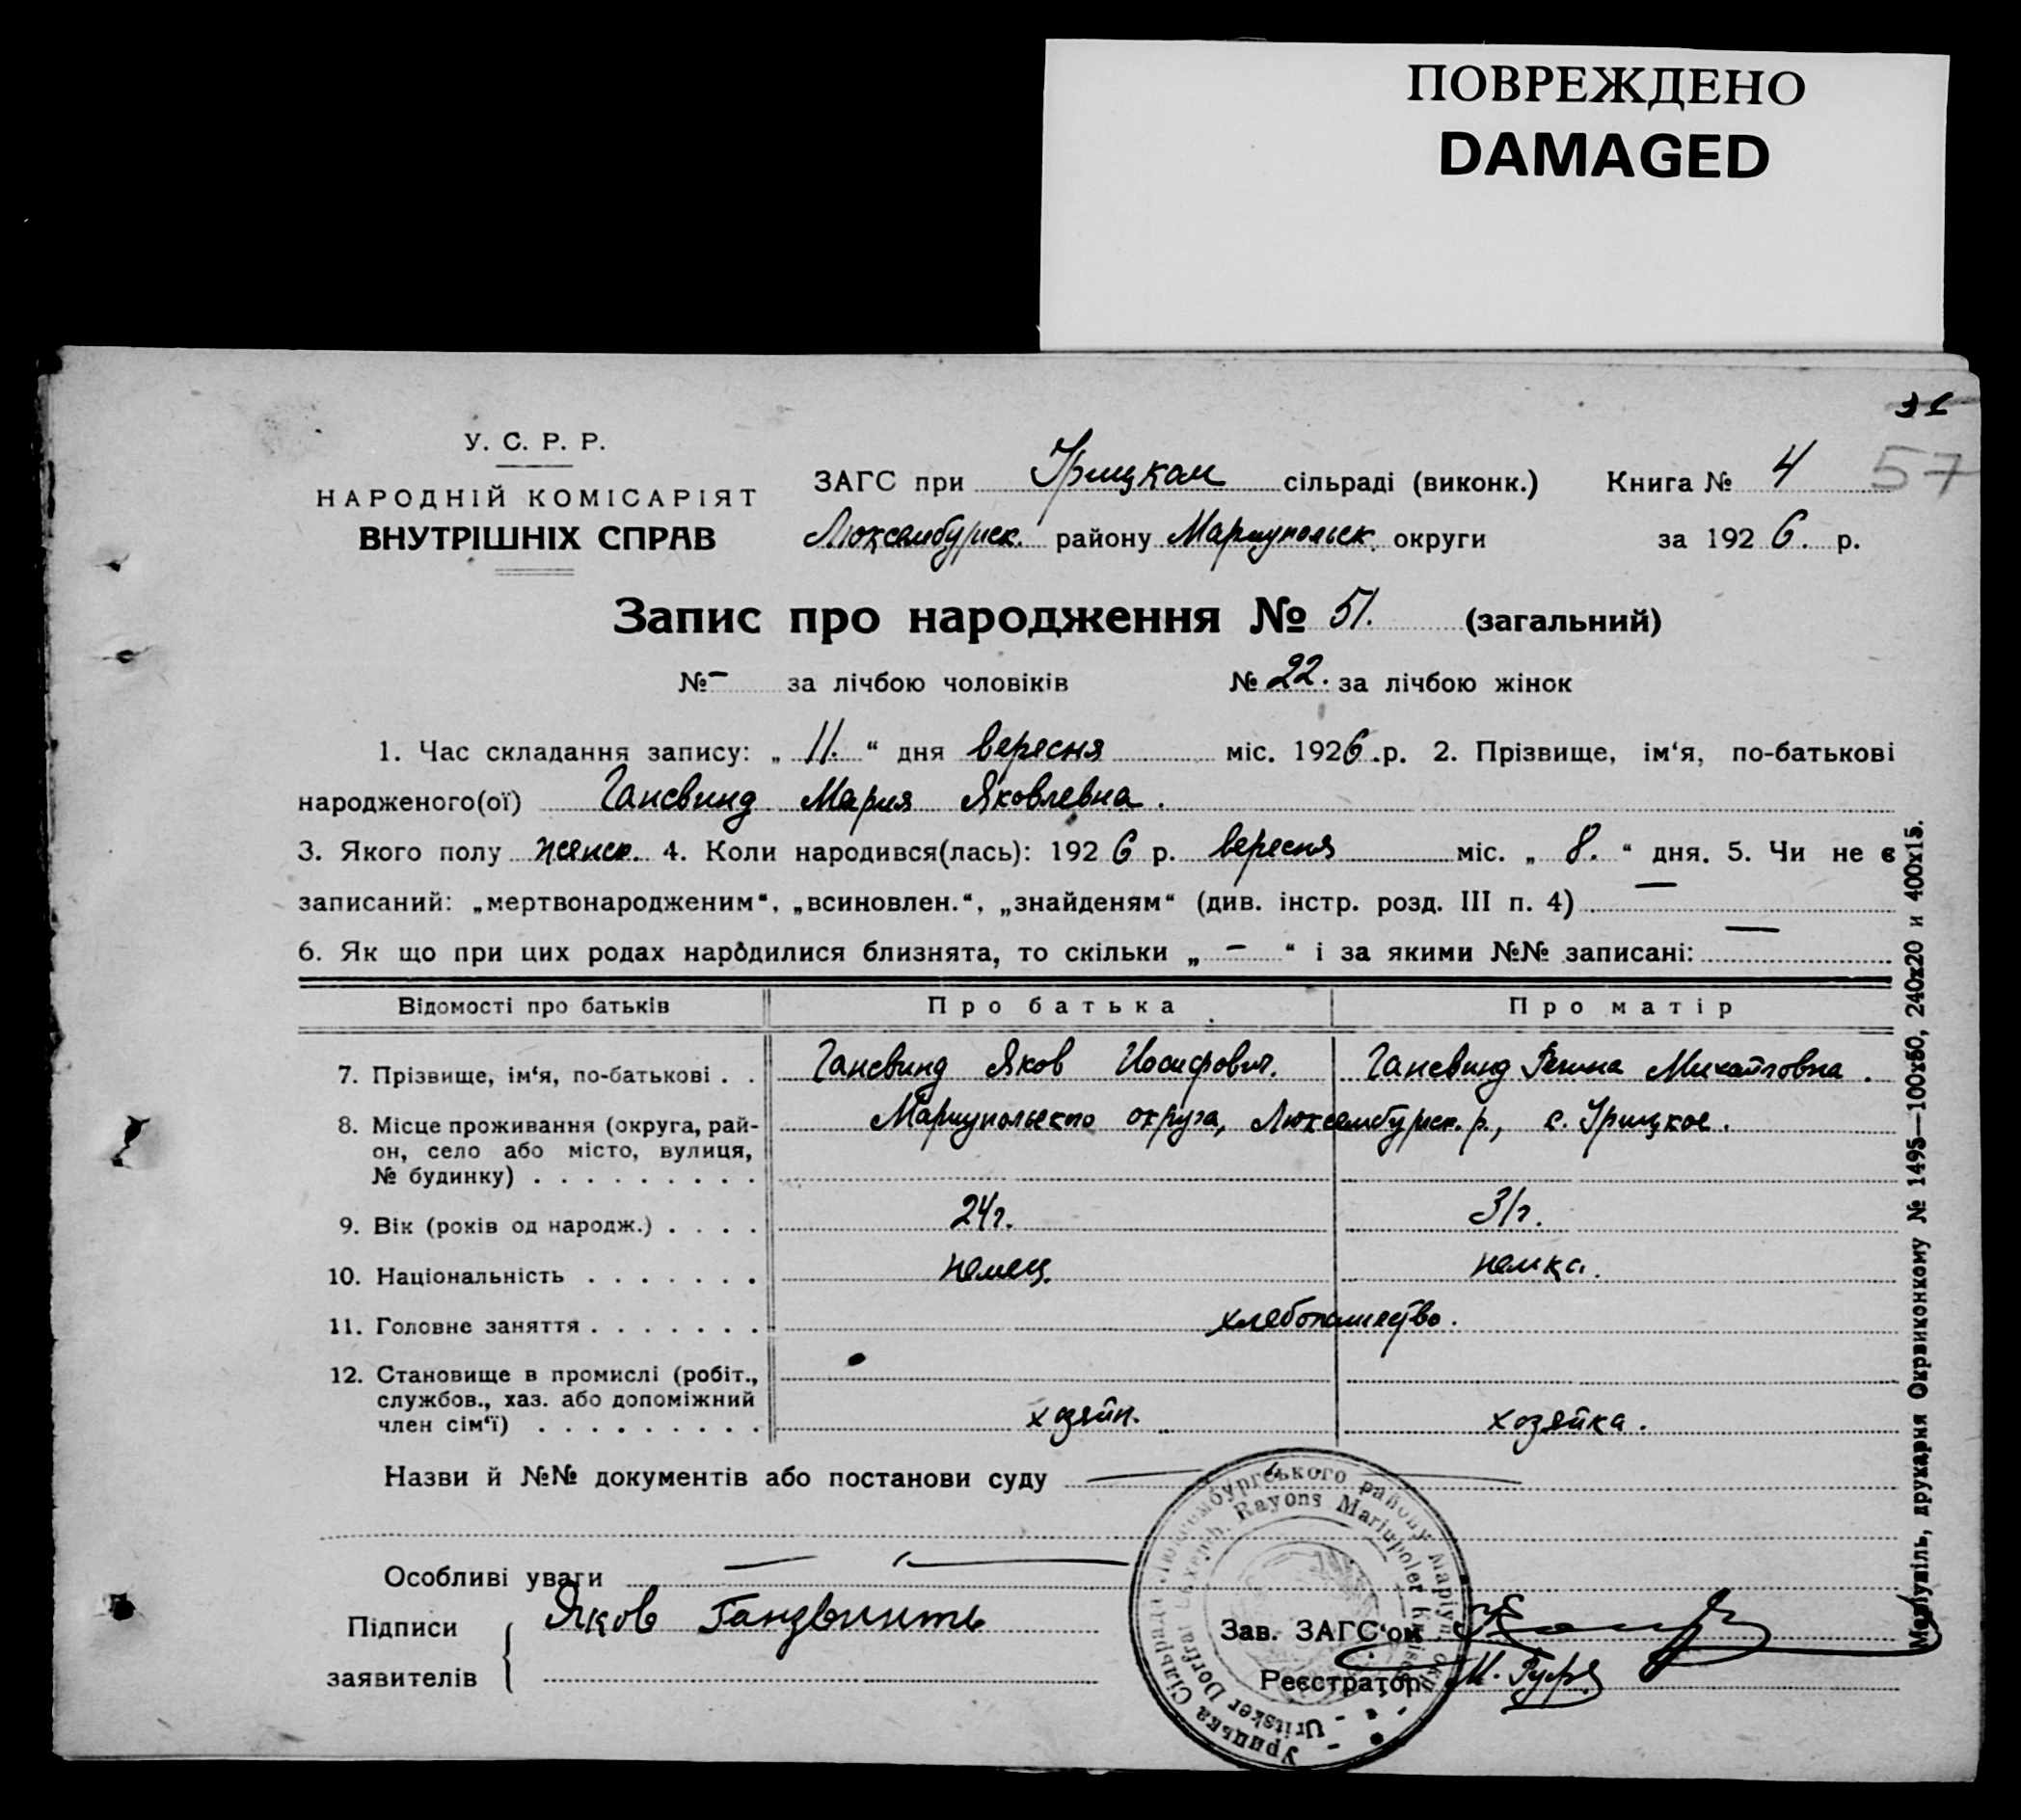 ПОВРЕЖДЕНО
DAMAGED
57
У. С. Р. Р.
НАРОДНІЙ КОМІСАРІЯТ
ВНУТРІШНІХ СПРАВ
ЗАГС при Урицком сільраді (виконк.) Книга № 4
Люксембургск. району Мариупольск. округи за 1926. р.
Запис про народження № 51. (загальний)
№ – за лічбою чоловіків № 22. за лічбою жінок
1. Час складання запису: „ 11. “ дня вересня міс. 1926.р. 2. Прізвище, ім‘я, по-батькові
народженого(ої) Гансвинд Мария Яковлевна.
3. Якого полу женск. 4. Коли народився(лась): 1926 р. вересня міс. „ 8. “ дня. 5. Чи не є
записаний: „мертвонародженим“, „всиновлен.“, „знайденям“ (див. інстр. розд. III п. 4) —
6. Як що при цих родах народилися близнята, то скільки „ – “ і за якими №№ записані: —
Відомості про батьків Про батька Про матір
7. Прізвище, ім‘я, по-батькові . . Гансвинд Яков Иосифович. Гансвинд Регина Михайловна.
8. Місце проживання (округа, рай- Мариупольского округа, Люксембургск. р., с. Урицкое.
он, село або місто, вулиця,
№ будинку) . . . . . . . . .
9. Вік (років од народж.) . . . . 24г. 31г.
10. Національність . . . . . . . немец. немка.
11. Головне заняття . . . . . . . хлебопашество.
12. Становище в промислі (робіт.,
службов., хаз. або допоміжний
член сім‘ї) . . . . . . . . . хозяин. хозяйка.
Назви й №№ документів або постанови суду —
Особливі уваги — —
Підписи Яков Гандвинть Зав. ЗАГС‘ом
заявителів Реєстратор М.
Урицька Сільрада Люксембургського району Маріуп. окр.
Uritsker Dorfrat Rayons Mariupoler Kreises
Маріупіль, друкарня Окрвиконкому № 1495—100х50, 240х20 и 400х15.